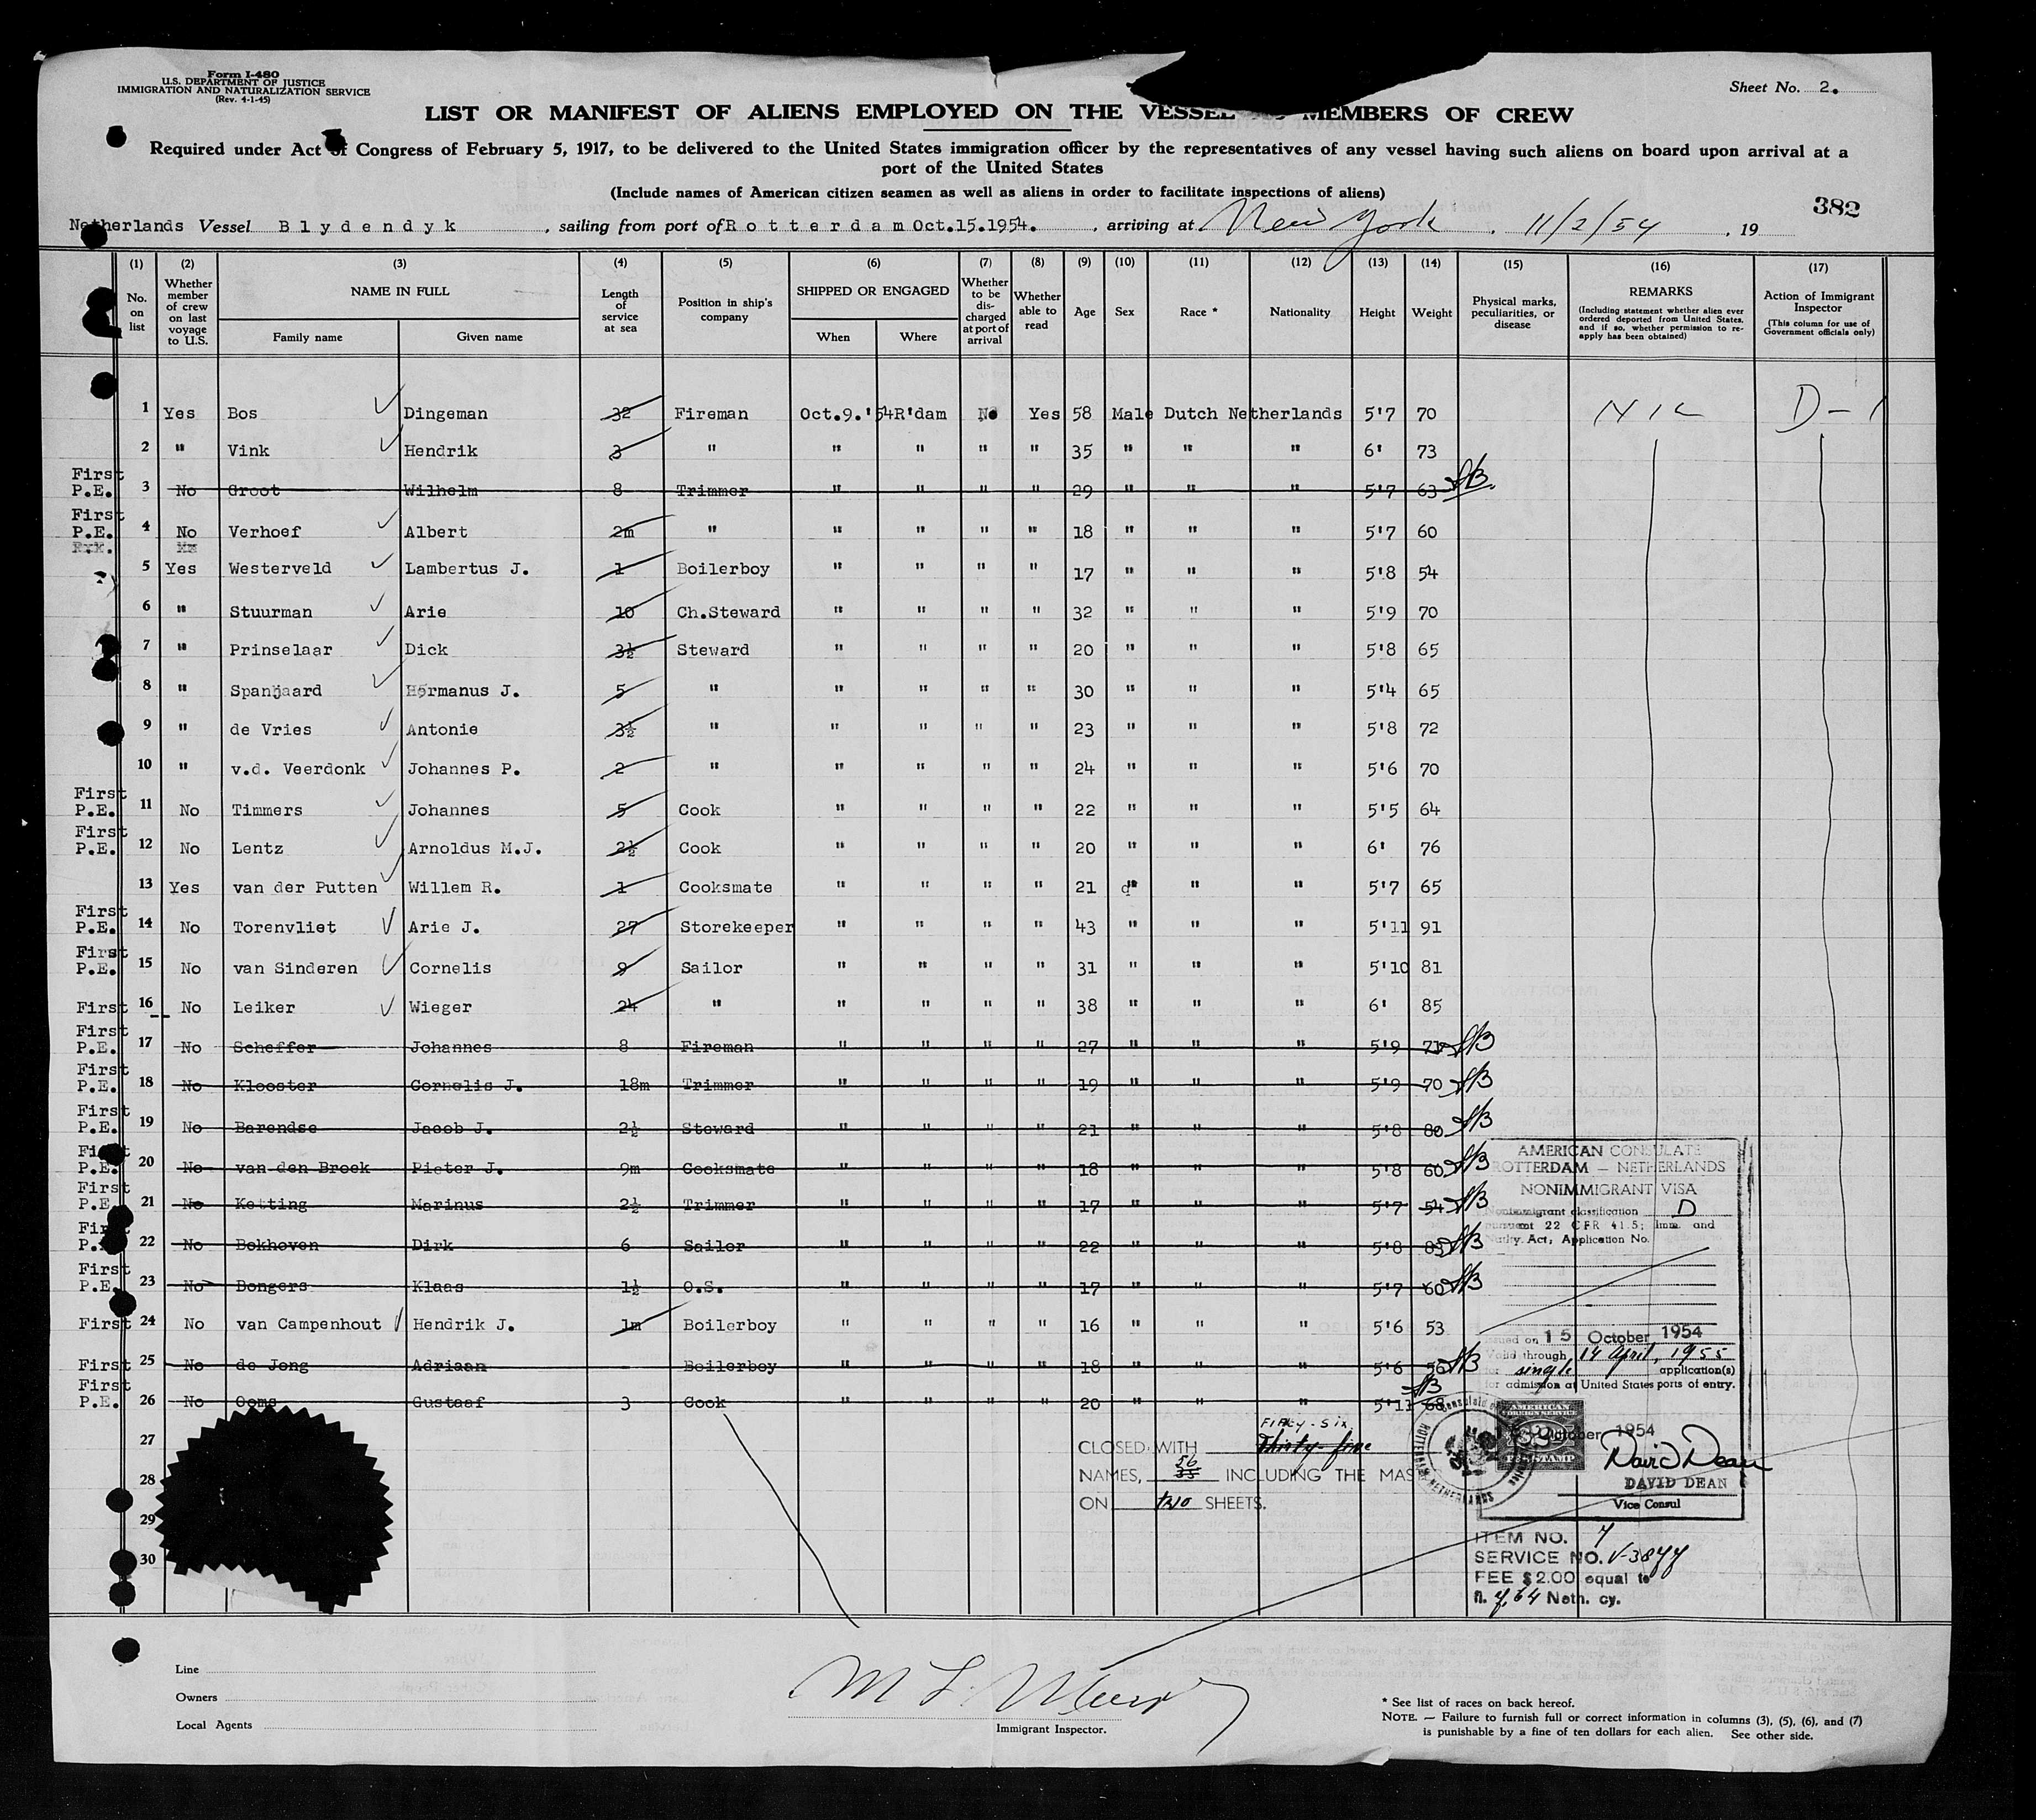 Form I-480
U.S. DEPARTMENT OF JUSTICE
IMMIGRATION AND NATURALIZATION SERVICE
(Rev. 4-1-45)
Sheet No. 2.
LIST OR MANIFEST OF ALIENS EMPLOYED ON THE VESSEL MEMBERS OF CREW
Required under Act of Congress of February 5, 1917, to be delivered to the United States immigration officer by the representatives of any vessel having such aliens on board upon arrival at a
port of the United States
(Include names of American citizen seamen as well as aliens in order to facilitate inspections of aliens)
382
Netherlands Vessel Blydendyk, sailing from port of Rotterdam Oct.15.1954., arriving at New York. 11/2/54, 19
(1) (2) (3) (4) (5) (6) (7) (8) (9) (10) (11) (12) (13) (14) (15) (16) (17)
No. on list
Whether member of crew on last voyage to U.S.
NAME IN FULL
Family name
Given name
Length of service at sea
Position in ship's company
SHIPPED OR ENGAGED
When
Where
Whether to be discharged at port of arrival
Whether able to read
Age
Sex
Race *
Nationality
Height
Weight
Physical marks, peculiarities, or disease
REMARKS
(Including statement whether alien ever ordered deported from United States, and if so, whether permission to reapply has been obtained)
Action of Immigrant Inspector
(This column for use of Government officials only)
1 Yes Bos Dingeman 32 Fireman Oct.9.'54 R'dam No Yes 58 Male Dutch Netherlands 5'7 70 D-1
2 " Vink Hendrik 3 " " " " " 35 " " " 6' 73
First P.E. 3 No Groot Wilhelm 8 Trimmer " " " " 29 " " " 5'7 63
First P.E. 4 No Verhoef Albert 2m " " " " " 18 " " " 5'7 60
5 Yes Westerveld Lambertus J. 1 Boilerboy " " " " 17 " " " 5'8 54
6 " Stuurman Arie 10 Ch.Steward " " " " 32 " " " 5'9 70
7 " Prinselaar Dick 3½ Steward " " " " 20 " " " 5'8 65
8 " Spanjaard Hermanus J. 5 " " " " " 30 " " " 5'4 65
9 " de Vries Antonie 3½ " " " " " 23 " " " 5'8 72
10 " v.d. Veerdonk Johannes P. 2 " " " " " 24 " " " 5'6 70
First P.E. 11 No Timmers Johannes 5 Cook " " " " 22 " " " 5'5 64
First P.E. 12 No Lentz Arnoldus M.J. 2½ Cook " " " " 20 " " " 6' 76
13 Yes van der Putten Willem R. 1 Cooksmate " " " " 21 " " " 5'7 65
First P.E. 14 No Torenvliet Arie J. 27 Storekeeper " " " " 43 " " " 5'11 91
First P.E. 15 No van Sinderen Cornelis 9 Sailor " " " " 31 " " " 5'10 81
First 16 No Leiker Wieger 24 " " " " " 38 " " " 6' 85
First P.E. 17 No Scheffer Johannes 8 Fireman " " " " 27 " " " 5'9 71
First P.E. 18 No Klooster Cornelis J. 18m Trimmer " " " " 19 " " " 5'9 70
First P.E. 19 No Barendse Jacob J. 2½ Steward " " " " 21 " " " 5'8 80
First P.E. 20 No van den Broek Pieter J. 9m Cooksmate " " " " 18 " " " 5'8 60
First P.E. 21 No Ketting Marinus 2½ Trimmer " " " " 17 " " " 5'7 54
First P.E. 22 No Bokhoven Dirk 6 Sailor " " " " 22 " " " 5'8 83
First P.E. 23 No Bongers Klaas 1½ O.S. " " " " 17 " " " 5'7 60
First 24 No van Campenhout Hendrik J. 1m Boilerboy " " " " 16 " " " 5'6 53
First 25 No de Jong Adriaan - Boilerboy " " " " 18 " " " 5'6 56
First P.E. 26 No Ooms Gustaaf 3 Cook " " " " 20 " " " 5'11 68
27
28
29
30
AMERICAN CONSULATE
ROTTERDAM — NETHERLANDS
NONIMMIGRANT VISA
Nonimmigrant classification D
pursuant 22 CFR 41.5; Imm. and
Natly. Act, Application No.
Issued on 15 October 1954
Valid through 14 April, 1955
for single application(s)
for admission at United States ports of entry.
AMERICAN
FOREIGN SERVICE
FEE STAMP
October 1954
David Dean
DAVID DEAN
Vice Consul
Fifty-six
CLOSED WITH Thirty-five
56
NAMES, 35 INCLUDING THE MAS
ON two SHEETS.
ITEM NO. 7
SERVICE NO. V-3877
FEE $2.00 equal to
fl. 7,64 Neth. cy.
Line
Owners
Local Agents
Immigrant Inspector.
* See list of races on back hereof.
NOTE. — Failure to furnish full or correct information in columns (3), (5), (6), and (7)
is punishable by a fine of ten dollars for each alien. See other side.